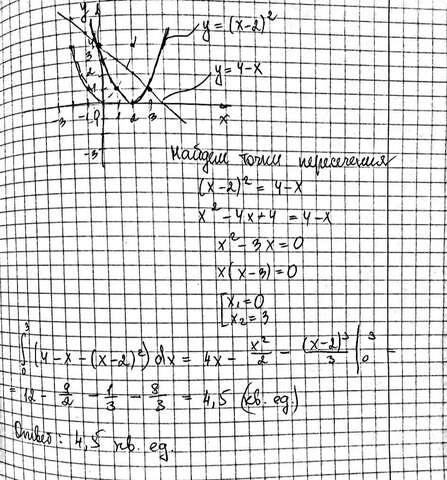 y
y = (x-2)²
y = 4-x
4
3
2
1
-3 -1 0 1 2 3 x
-3
Найдем точки пересечения
(x-2)² = 4-x
x² - 4x + 4 = 4-x
x² - 3x = 0
x(x-3) = 0
[x₁ = 0
x₂ = 3
∫₀³ (4-x-(x-2)²) dx = 4x - x²/2 - (x-2)³/3 |₀³ =
= 12 - 9/2 - 1/3 - 8/3 = 4,5 (кв. ед.)
Ответ: 4,5 кв. ед.